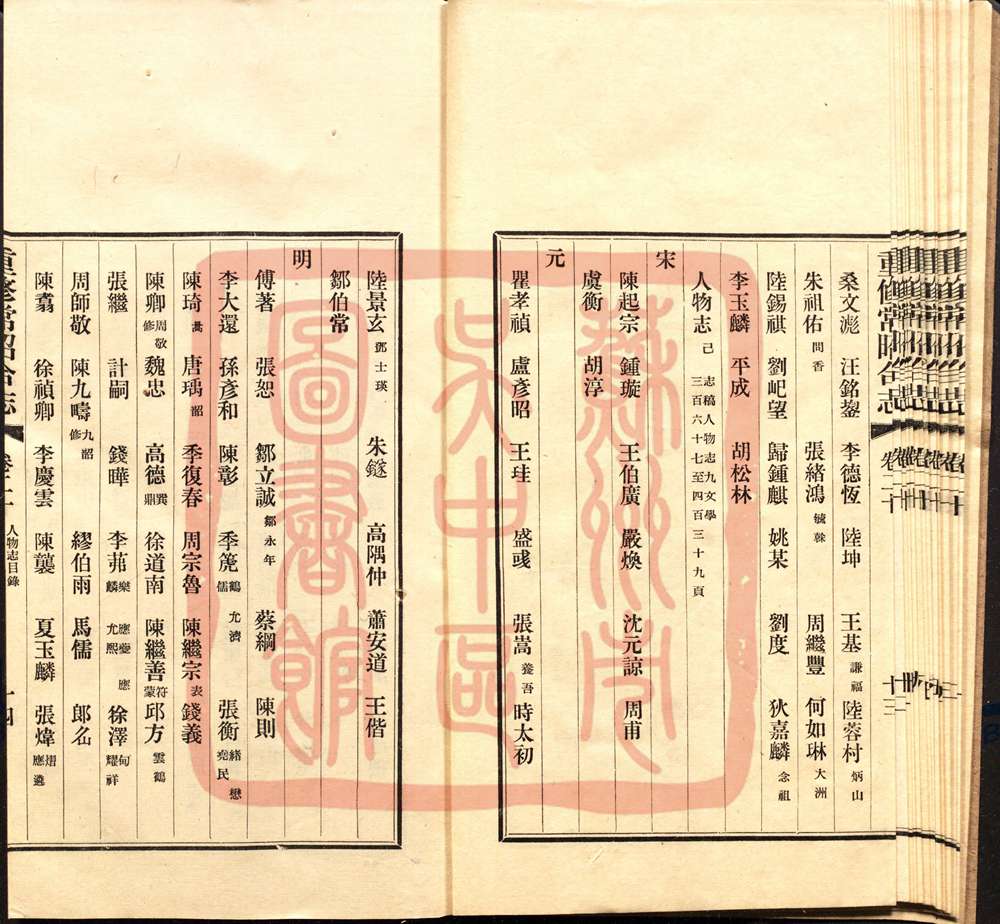 桑文滮 汪銘鋆 李德恆 陸坤 王基謙福 陸蓉村炳山
朱祖佑問香 張緒鴻毓榦 周繼豐 何如琳大洲
陸錫祺 劉屺望 歸鍾麒 姚某 劉度 狄嘉麟念祖
李玉麟 平成 胡松林
人物志己 志稿人物志九文學三百六十七至四百三十九頁
宋
陳起宗 鍾璇 王伯廣 嚴煥 沈元諒 周甫
虞衡 胡淳
元
瞿孝禎 盧彥昭 王珪 盛彧 張嵩養吾 時太初
陸景玄鄧士瑛 朱鐩 高隅仲 蕭安道 王偕
鄒伯常
明
傅著 張恕 鄒立誠鄒永年 蔡綱 陳則
李大還 孫彥和 陳彰 季篪鶴儒尤濟 張衡緒堯民懋
陳琦暠 唐瑀韶 季復春 周宗魯 陳繼宗表 錢義
陳卿周敬修 魏忠 高德巽鼎 徐道南 陳繼善符蒙 邱方雲鶴
張繼 計嗣 錢曄 李茀樂麟應尤熙應 徐澤旬耀祥
周師敬 陳九疇九韶修 繆伯雨 馬儒 郎㕘
陳翥 徐禎卿 李慶雲 陳龔 夏玉麟 張煒熠應遴
重修常昭合志 卷二 人物志目錄 十四
圖書館
吳中區
蘇州市